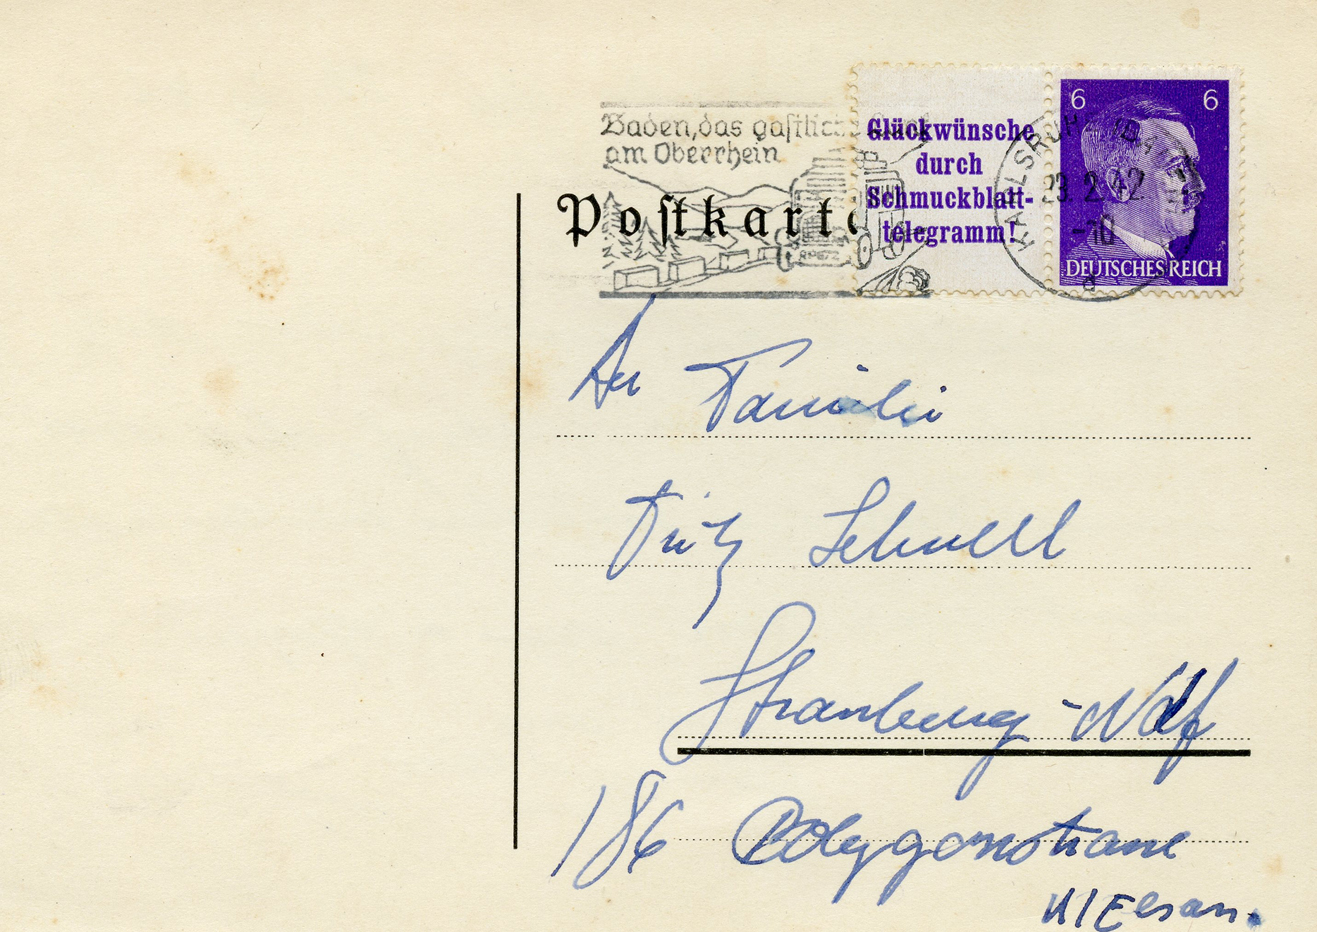 Baden, das gastliche
am Oberrhein
Postkarte
Glückwünsche
durch
Schmuckblatt-
telegramm!
6 6
DEUTSCHES REICH
KARLSRUHE
23.2.42
-10
d
An Familie
Fritz Schnell
Strassburg-Ndf
186 Polygonstrasse
i/Elsass.